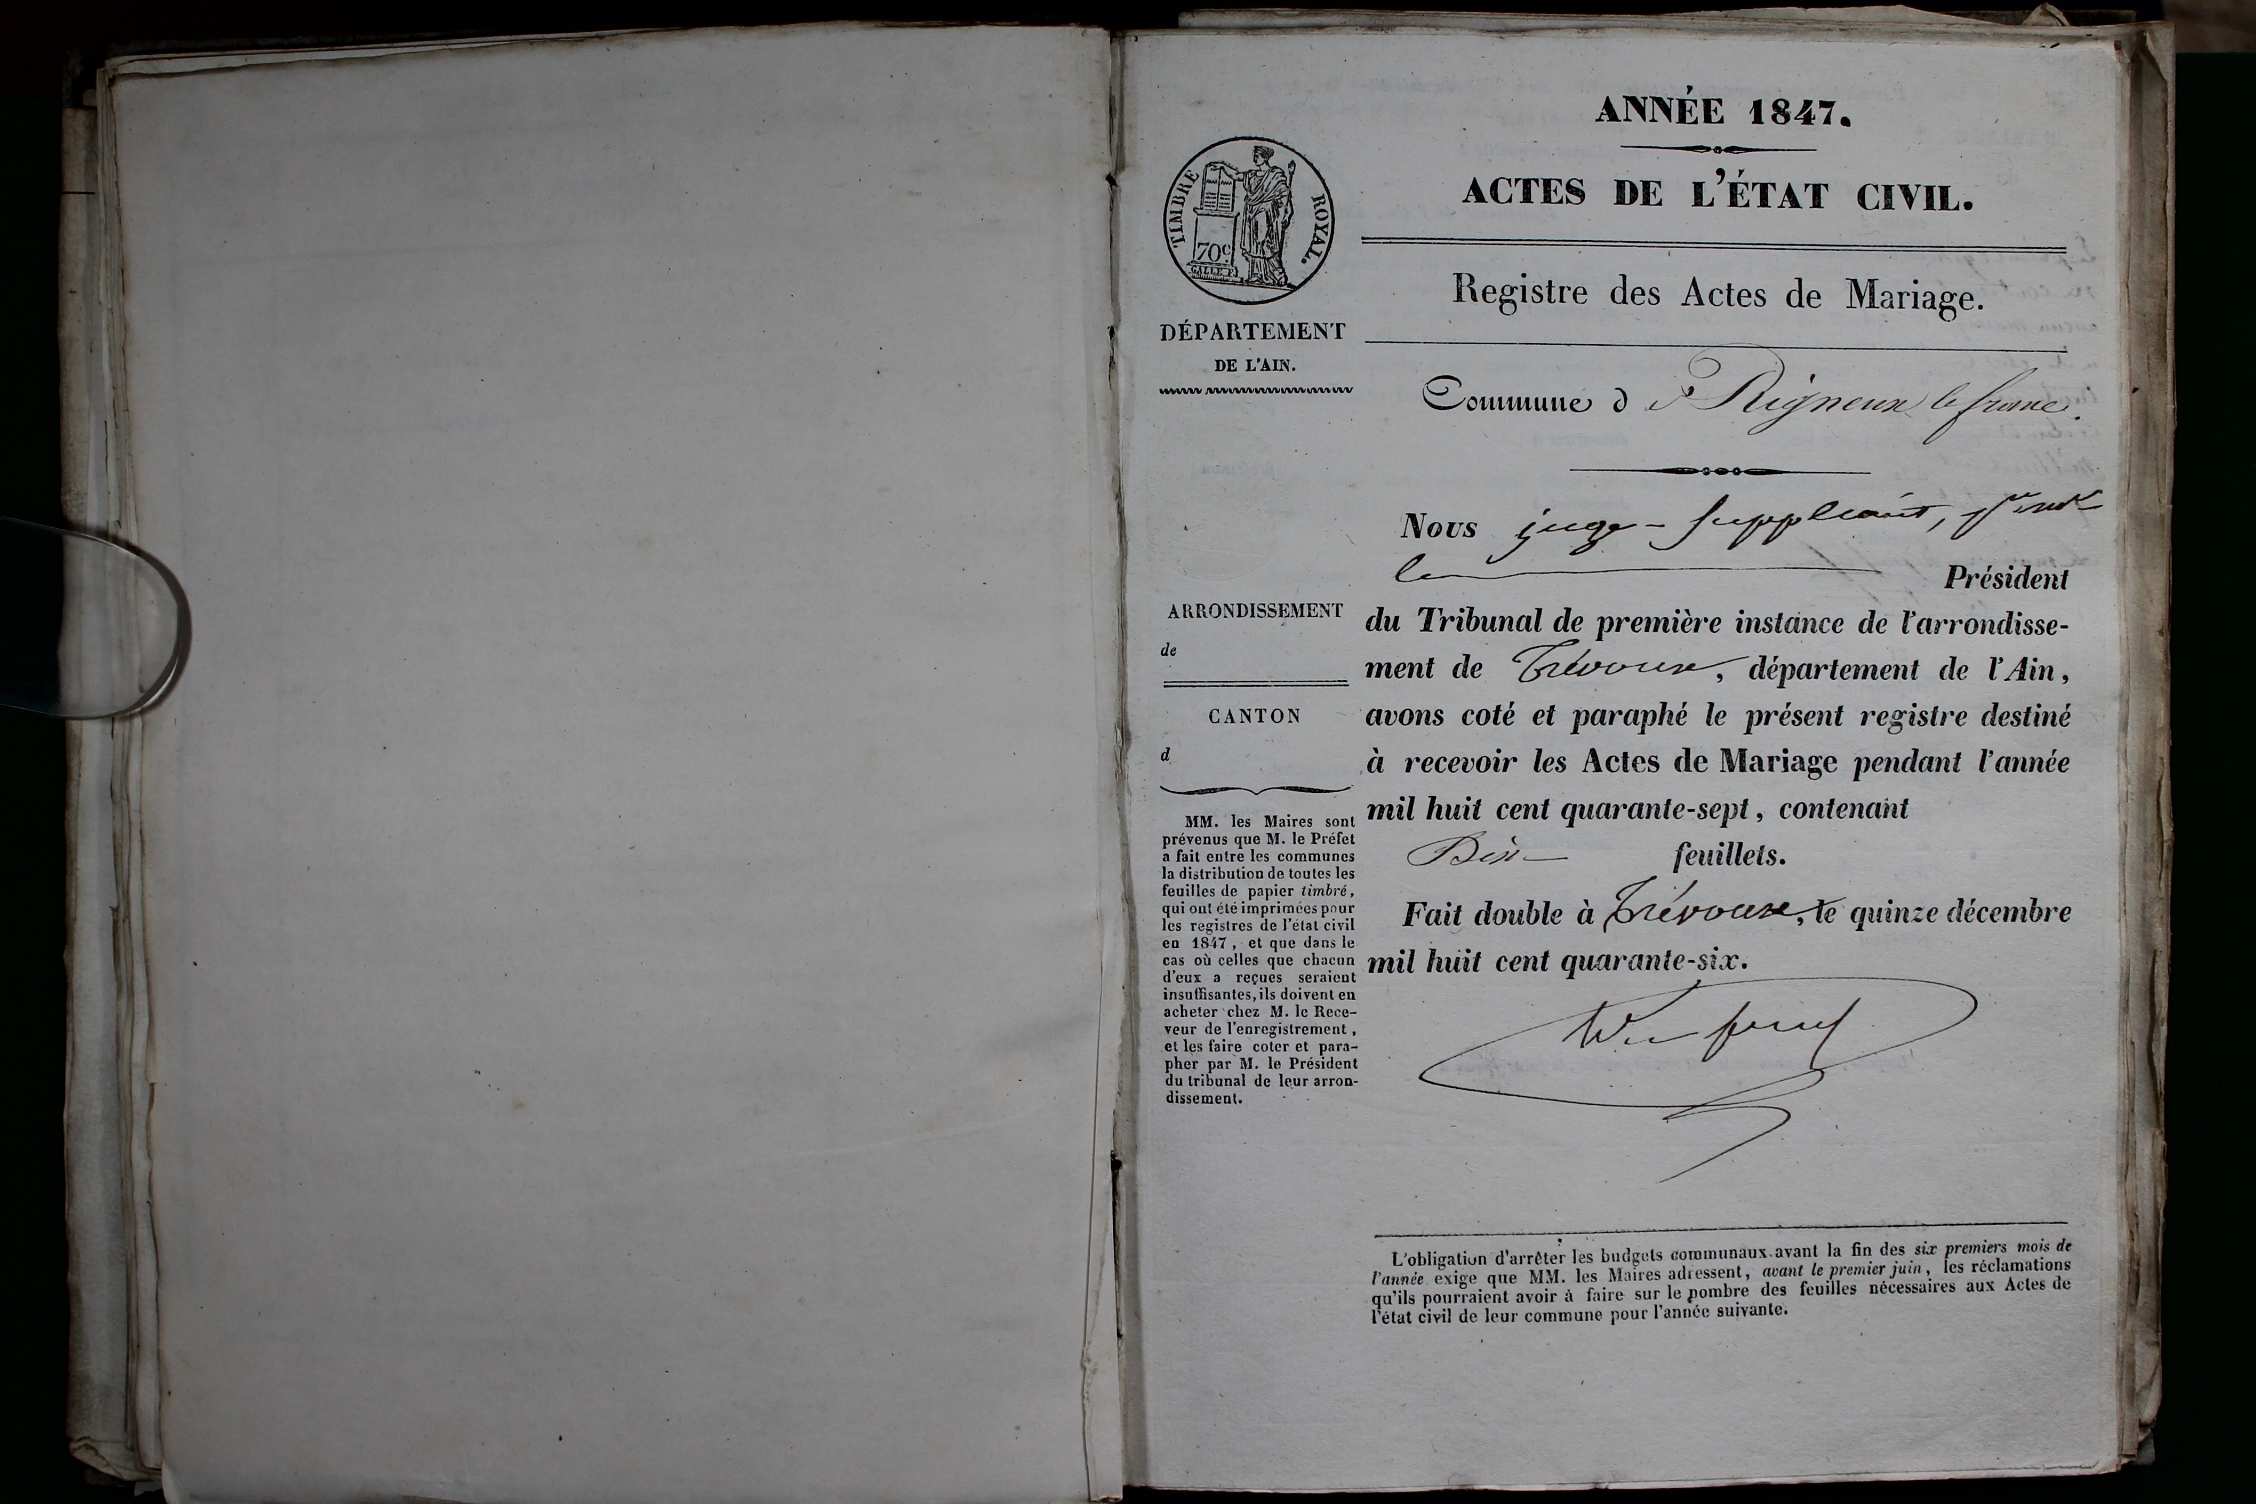 ANNÉE 1847.
ACTES DE L'ÉTAT CIVIL.
TIMBRE ROYAL.
70 c
Registre des Actes de Mariage.
DÉPARTEMENT
DE L'AIN.
Commune d Rigneux le franc.
Nous juge-suppléant,
le Président
du Tribunal de première instance de l'arrondisse-
ment de Trévoux, département de l'Ain,
avons coté et paraphé le présent registre destiné
à recevoir les Actes de Mariage pendant l'année
mil huit cent quarante-sept, contenant
feuillets.
Fait double à Trévoux, le quinze décembre
mil huit cent quarante-six.
ARRONDISSEMENT
de
CANTON
d
MM. les Maires sont
prévenus que M. le Préfet
a fait entre les communes
la distribution de toutes les
feuilles de papier timbré,
qui ont été imprimées pour
les registres de l'état civil
en 1847, et que dans le
cas où celles que chacun
d'eux a reçues seraient
insuffisantes, ils doivent en
acheter chez M. le Rece-
veur de l'enregistrement,
et les faire coter et para-
pher par M. le Président
du tribunal de leur arron-
dissement.
L'obligation d'arrêter les budgets communaux avant la fin des six premiers mois de
l'année exige que MM. les Maires adressent, avant le premier juin, les réclamations
qu'ils pourraient avoir à faire sur le nombre des feuilles nécessaires aux Actes de
l'état civil de leur commune pour l'année suivante.